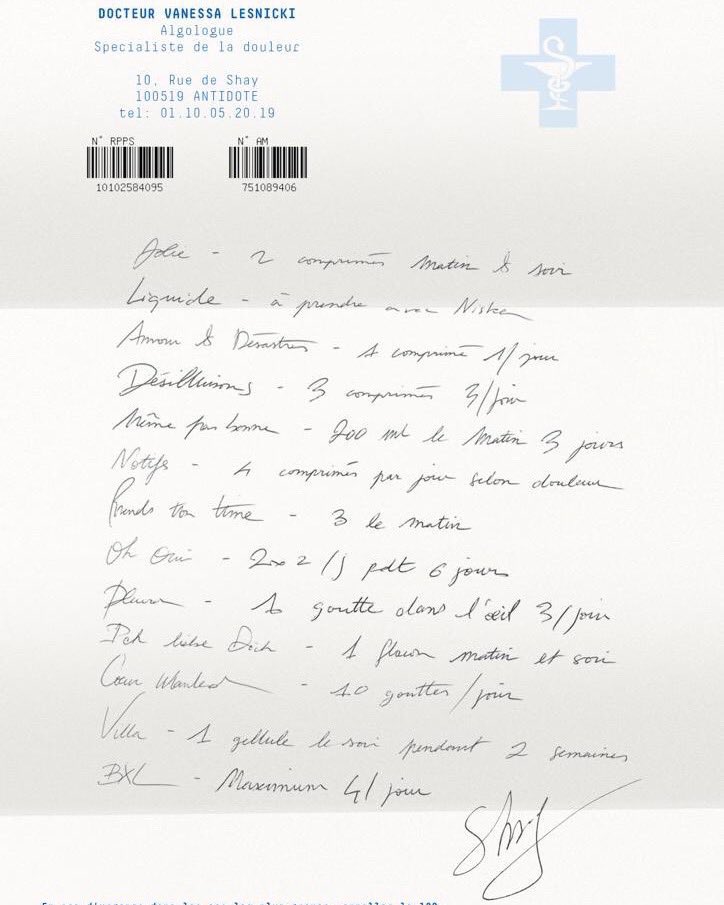 DOCTEUR VANESSA LESNICKI
Algologue
Specialiste de la douleur
10, Rue de Shay
100519 ANTIDOTE
tel: 01.10.05.20.19
N° RPPS
10102584095
N° AM
751089406
Jolie - 2 comprimés matin & soir
Liquide - à prendre avec Niska
Amour & Désastres - 1 comprimé 1/jour
Désillusions - 3 comprimés 3/jour
Même pas bonne - 200 ml le matin 3 jours
Notifs - 4 comprimés par jour selon douleur
Prends ton time - 3 le matin
Oh Oui - 2/j pdt 6 jours
Pleurer - 1 goutte dans l'œil 3/jour
Ich liebe Dich - 1 flacon matin et soir
Cœur Wanted - 10 gouttes/jour
Villa - 1 gellule le soir pendant 2 semaines
BXL - Maximum 4/jour
Shay